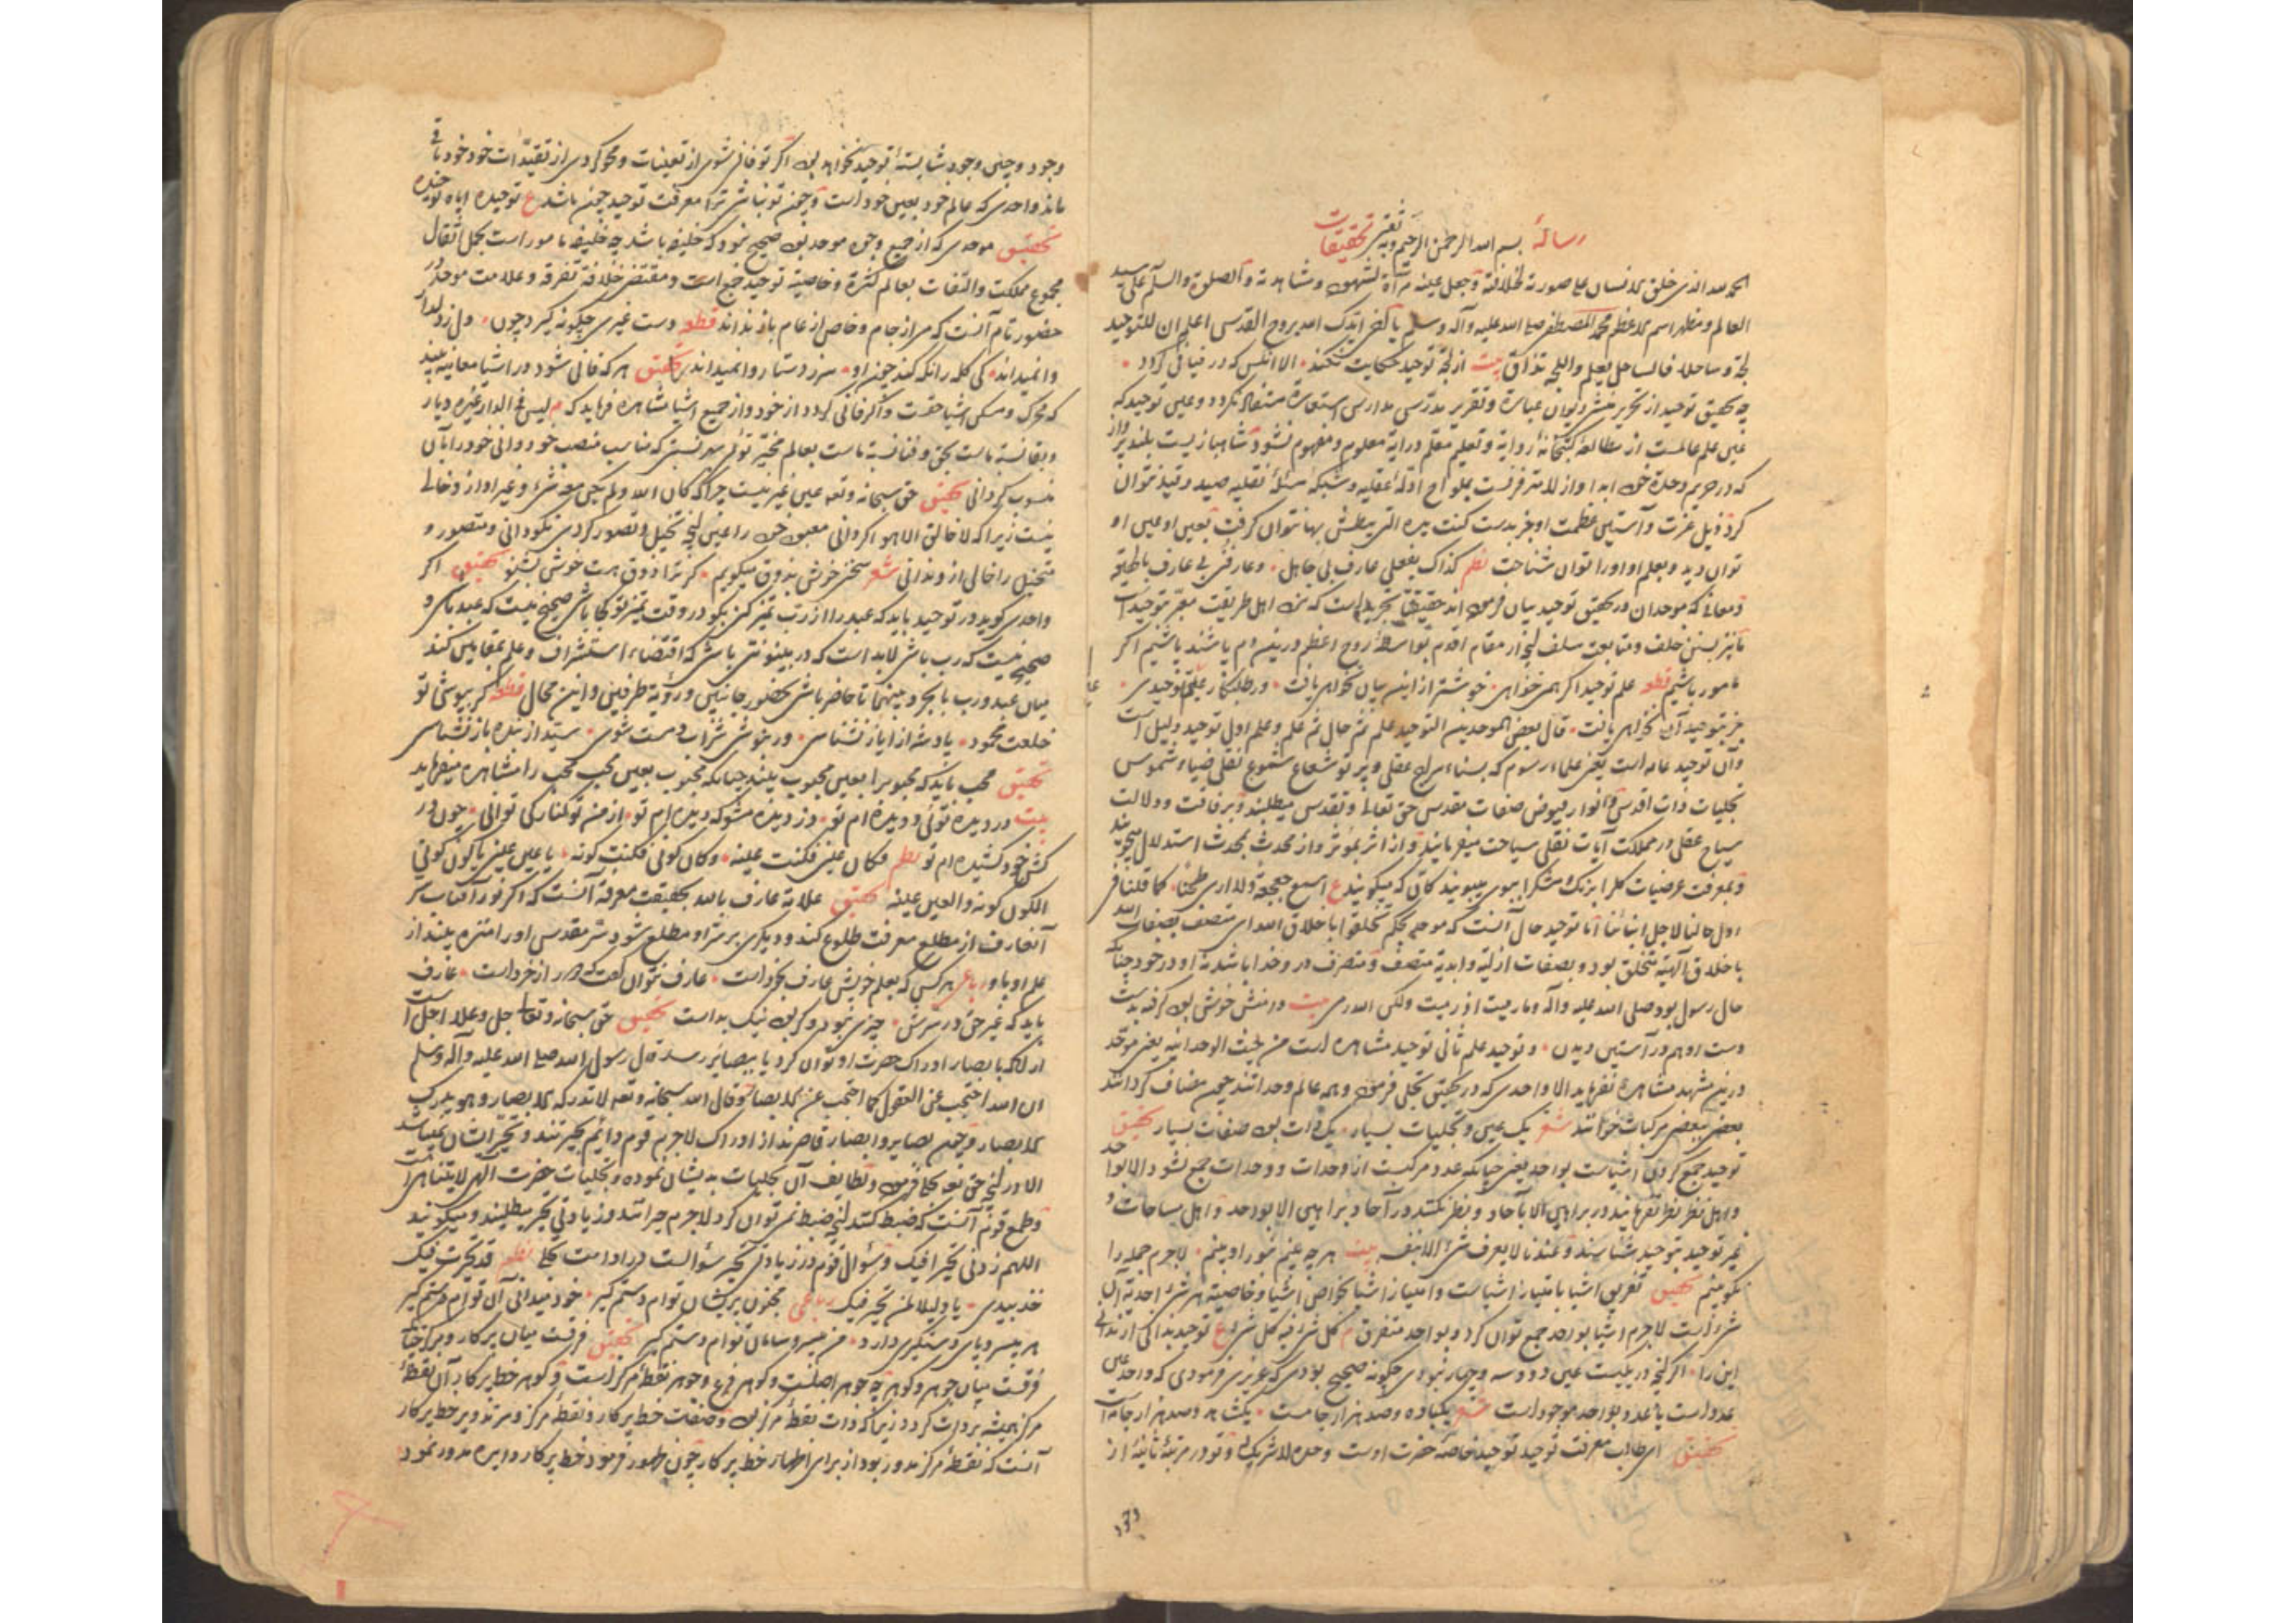 رسالهٔ بسم الله الرحمن الرحیم وبه نستعین تحقیقات
الحمد لله الذی خلق الانسان علی صورة لخلافته وجعل عینه مرآة لشهوده ومشاهدته والصلوة والسلم علی سید
العالم ومظهر اسم الاعظم محمد المصطفی صلی الله علیه وآله وسلم یا اخی ایدک الله بروح القدسی اعلم ان للتوحید
لجة وساحلا فالساحل یعلم واللجة تذاق بیت از لجهٔ توحید حکایت نکند الا انکس که در فنا فی کردد
چه تحقیق توحید از تحریر منشی دیوان عبارة وتقریر مدرس مدارس استعارة مستفاد نکردد وعین توحید که
عین علم عالمست از مطالعهٔ کتبخانهٔ روایة وتعلیم معلم درایة معلوم ومفهوم نشود شاهبازیست بلند پرواز
که در حریم وحدة خود ابدا واز لا متفرفست بملواح ادلهٔ عقلیه وشبکهٔ مسئلهٔ نقلیه صید وقید نتوان
کرد ذیل عزت وآستین عظمت او جز بدست کنت یده التی یبطش بها نتوان کرفت بعین او عین او
توان دید وبعلم او اورا توان شناخت نظم کذاک بفعلی عارف بی جاهل وعارفتی بی عارف بالحقیقة
ومعانی که موحدان در تحقیق توحید بیان فرموده اند حقیقتا تجرید است که نزد اهل طریقت معبر بتوحید است
ما نیز بسنن خلف ومتابعت سلف آنچه از مقام اقدم بواسطهٔ روح اعظم درین دم یا باشند باشیم اکر
مأمور باشیم قطعه علم توحید اکر همی خواهی خوشتر از این بیان نخواهی یافت ور طلبکار علم توحیدی
جز بتوحید آن نخواهی یافت قال بعض الموحدین التوحید علم ثم حال ثم علم وعلم اول توحید دلیل است
وآن توحید عامه است یعنی علماء رسوم که بسناء سراج عقلی وپرتو شعاع شموع نقلی ضیاء شموس
تجلیات ذات اقدسی وانوار فیوض صفات مقدس حق تعالی وتقدس میطلبند وبرفاقت ودلالت
سیاح عقلی در مملکت آیات نقلی سیاحت میفرمایند واز اثر بمؤثر واز محدث بمحدث استدلال میجویند
وبمعرفت عرضیات کل را برنک ومشک را ببوی میبویند کانی که میکویند ع اسمع جعجعة ولا اری طحنا کما قلنا فی
اول حالنا لاجل ابنائنا اما توحید حال آنست که موحد بحکم تخلقوا باخلاق الله ای متصف بصفات الله
باخلاق الهیه متخلق بود وبصفات ازلیة وابدیة متصف ومتصرف در وخدا باشد نه او در خود چنانکه
حال رسول بود صلی الله علیه وآله وما رمیت اذ رمیت ولکن الله رمی بیت دامنش خوش بود کرفته بدست
دست او هم در آستین دیدن وتوحید علم ثانی توحید مشاهده است من حیث الوحدانیة یعنی موحد
درین مشهد مشاهدة نفرماید الا واحدی که در تحقیق تجلی فرموده وهمه عالم وحدانند چون مضاف کردانند
بعضی ببعضی مرکبات خوانند شعر یک عین وتجلیات بسیار یک ذات بود صفات بسیار تحقیق
توحید جمع کردن اشیاست بواحد یعنی چنانکه عدد مرکبست از وحدات ووحدات جمع نشود الا بواحد
واهل نظر نظر نفرمایند در براهین الا بآحاد ونظر نکنند در آحاد براهین الا بواحد واهل مساحات و
غیر توحید بتوحید شناسند وعندنا لا یعرف شیء الا بنفسه بیت هرچه بینم بنور او بینم لاجرم جمله را
نکو بینم تحقیق تفریق اشیا بامتیاز اشیاست وامتیاز اشیا بخواص اشیا وخاصیة هر شیء احدیة آن
شیء است لاجرم اشیا بواحد جمع توان کرد وبواحد متفرق م کل شیء فیه کل شیء ع توحید بدانی ار ندانی
این را اکر آنچه در یکیست عین دو وسه وچهار نبودی چکونه صحیح بودی که عزیزی فرمودی که واحد عین
عدد است یا عدد بواحد موجود است شعر یکباده وصد هزار جامست یکشاهد وصد هزار جانست
تحقیق ای طالب معرفت توحید توحید خاصهٔ حضرت اوست وحده لا شریک له وتو در مرتبهٔ ثانیهٔ از
وجود
وجود وچنین وجود شایستهٔ توحید نخواهد بود اکر تو فانی شوی از تعینات ومحو کردی از تقیدات خود خود باقی
ماند واحدی که عالم خود بعین خود است وچون تو نباشی ترا معرفت توحید چون باشد ع توحیده ایاه توحیده
تحقیق موحدی که از جمیع وجوه موحد بود صحیح نبود که خلیفه باشد چه خلیفه مامور است بحمل اثقال
مجموع مملکت والتفات بعالم کثرة وخاصیة توحید جمع است ومقتضی خلافة تفرقه وعلامت موحد در
حضور تام آنست که می از جام وخاص از عام باز نداند قطعه دست غیری چکونه کیرد چون دل ز دلدار
وا نمیداند کی کله را نکه کند چون او سر ز دستار وا نمیداند تحقیق هرکه فانی شود در اشیا معاینه بیند
که محرک ومسکن اشیا حقست واکر فانی کردد از خود واز جمیع اشیا مشاهده فرماید که م لیس فی الدار غیره دیار
وبقا نسبة ماست بحق وفنا نسبة ماست بعالم مخیر تو بهر نسبتی که مناسب منصب خود دانی خود را بآن
منسوب کردانی تحقیق حق سبحانه وتعه عین غیر نیست چرا که کان الله ولم یکن معه شیء وغیر او از وخالی
نیست زیرا که لا خالق الا هو اکر دانی معبود خود را عین آنچه تخیل وتصور کردی نکو دانی ومتصور و
متخیل را خالی از و ندانی شعر سخن خوشی بذوق میکویم کر ترا ذوق هست خوش بشنو تحقیق اکر
واحدی کوید در توحید باید که عبد را از رب تمیز کنی بکو در وقت تمیز تو کجا باشی صحیح نیست که عبد باشی و
صحیح نیست که رب باشی لابد است که در بینونتی باشی که اقتضاء استشراف وعلم بمقامین کند
میان عبد ورب با تجرد بینهما تا حاضر باشی بحضور جانبین ورؤیة طرفین واین محال قطعه کر بپوشی تو
خلعت محمود پادشه از ایاز نشناسی ور بنوشی شراب ومست شوی سید از بنده باز نشناسی
تحقیق محب باید که محبوب را بعین محبوب بیند چنانکه محبوب بعین محب محب را مشاهده میفرماید
بیت در دیده توئی ودیده ام تو وز دیده مشو که دیده ام تو از من تو کنار کی توانی چون در
کش خود کشیده ام تو نظم فکان عینی فکنت عینه وکان کونی فکنت کونه یا عین عینی یا کون کونی
الکون کونه والعین عینه تحقیق علامة عارف بالله بحقیقت معرفة آنست که اکر نور آفتاب سر
آنعارف از مطلع معرفت طلوع کند ودیکری بر سر او مطلع شود سر مقدس او را منزه بیند از
علم او باو رباعی هرکس که بعلم خویش عارف بخود است عارف نتوان کفت که دور از خرد است عارف
باید که غیر حق در سرش چیزی نبود وکر بود نیک بد است تحقیق حق سبحانه وتعالی جل وعلا اجل است
از آنکه بابصار ادراک حضرت او توان کرد یا ببصایر رسد قال رسول الله صلی الله علیه وآله وسلم
ان الله احتجب عن العقول کما احتجب عن الابصار وقال الله سبحانه وتعه لا تدرکه الابصار وهو یدرک
الابصار وچون بصایر وابصار قاصرند از ادراک لاجرم قوم دائم بحیرتند وتحیر ایشان بتجلیاتست
الا در آنچه حق تعه تجلی فرموده ولطایف آن تجلیات بدیشان نموده وتجلیات حضرت الهی لا یتناهی است
وطمع قوم آنست که ضبط کنند آنچه ضبط نمی توان کرد لاجرم حیرانند وزیادتی تحیر میطلبند ومیکویند
اللهم زدنی تحیرا فیک وسؤال قوم در زیادتی تحیر سؤالست در ادامت تجلی نظم قد تحیرت فیک
خذ بیدی یا دلیلا لمن تحیر فیک رباعی مجنون پریشان توام دستم کیر خود میدانی آن توام دستم کیر
هر بیسر وپای دستکیری دارد من بیسر وسامان توام دستم کیر تحقیق فرقست میان پرکار ومرکز چنانکه
فرقست میان جوهر وکوهر چه جوهر اصلست وکوهر فرع وجوهر نقطهٔ مرکز است وکوهر خط پرکار آن نقطهٔ
مرکز همیشه بر ذات کردد زیرا که ذات نقطهٔ مرکز بود وصفات خط پرکار ونقطهٔ مرکز ومرتد وبر خط پرکار
آنست که نقطهٔ مرکز مدور بود از برای اظهار خط پرکار چون ظهور فرمود خط پرکار دایره مدور نمود